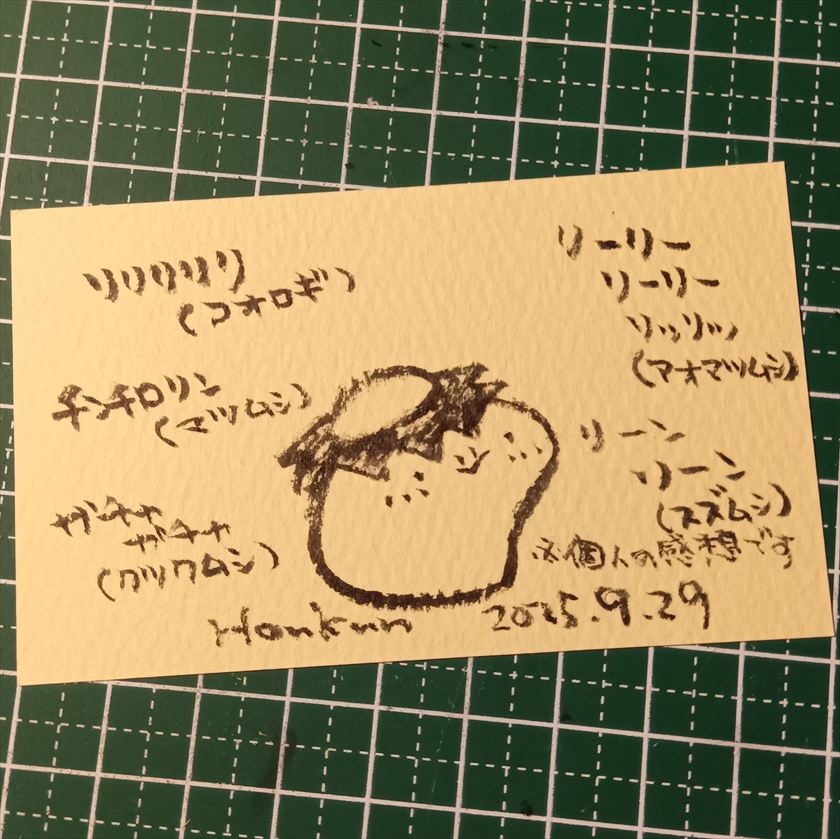 リリリリリ
(コオロギ)
チンチロリン
(マツムシ)
ガチャ
ガチャ
(クツワムシ)
リーリー
リーリー
リッリッ
(アオマツムシ)
リーン
リーン
(スズムシ)
※個人の感想です
Honkun 2025.9.29